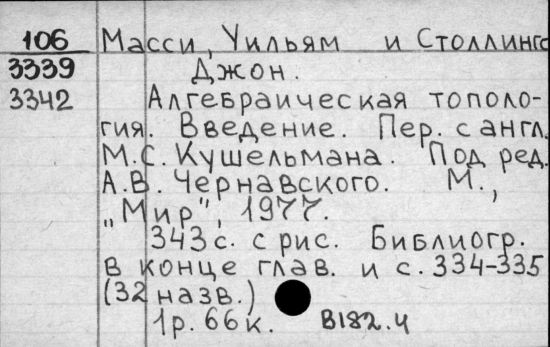 106 Масси, Уильям и Столлингс
3339 Джон.
3342 Алгебраическая тополо-
гия. Введение. Пер. с англ.
М.С. Кушельмана. Под ред.
А.В. Чернавского. М.,
„Мир", 1977.
343 с. с рис. Библиогр.
в конце глав. и с. 334-335
(32 назв.)
1р. 66к. В182.4